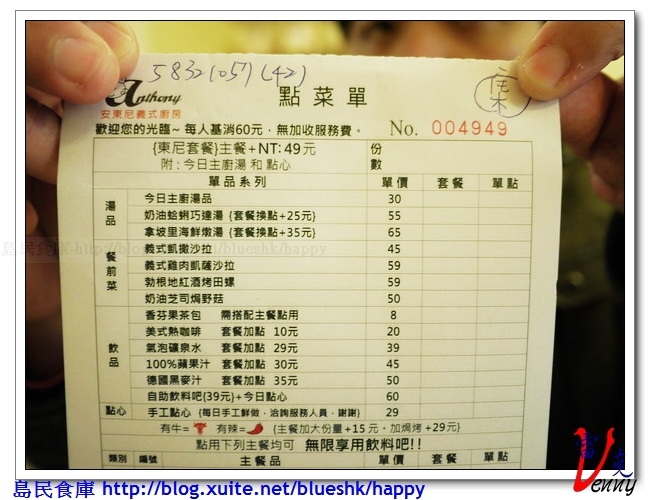 5832 1057 (42)
Anthony
安東尼義式廚房
點菜單
歡迎您的光臨~ 每人基消60元，無加收服務費。 No. 004949
{東尼套餐}主餐+NT: 49元 份數
附 : 今日主廚湯 和 點心
單品系列 單價 套餐 單點
湯品
今日主廚湯品 30
奶油蛤蜊巧達湯 {套餐換點+25元} 55
拿坡里海鮮燉湯 {套餐換點+35元} 65
餐前菜
義式凱撒沙拉 45
義式雞肉凱薩沙拉 59
勃根地紅酒烤田螺 59
奶油芝司焗野菇 50
飲品
香芬果茶包 需搭配主餐點用 8
美式熱咖啡 套餐加點 10元 20
氣泡礦泉水 套餐加點 29元 39
100%蘋果汁 套餐加點 30元 45
德國黑麥汁 套餐加點 35元 50
自助飲料吧{39元}+今日點心 60
點心 手工點心 {每日手工鮮做，洽詢服務人員，謝謝} 29
有牛= 有辣= {主餐加大份量+15元，加焗烤 +29元}
點用下列主餐均可 無限享用飲料吧!!
類別 編號 主餐品 單價 套餐 單點
島民食庫-http://blog.xuite.net/blueshk/happy
島民食庫 http://blog.xuite.net/blueshk/happy
Venny